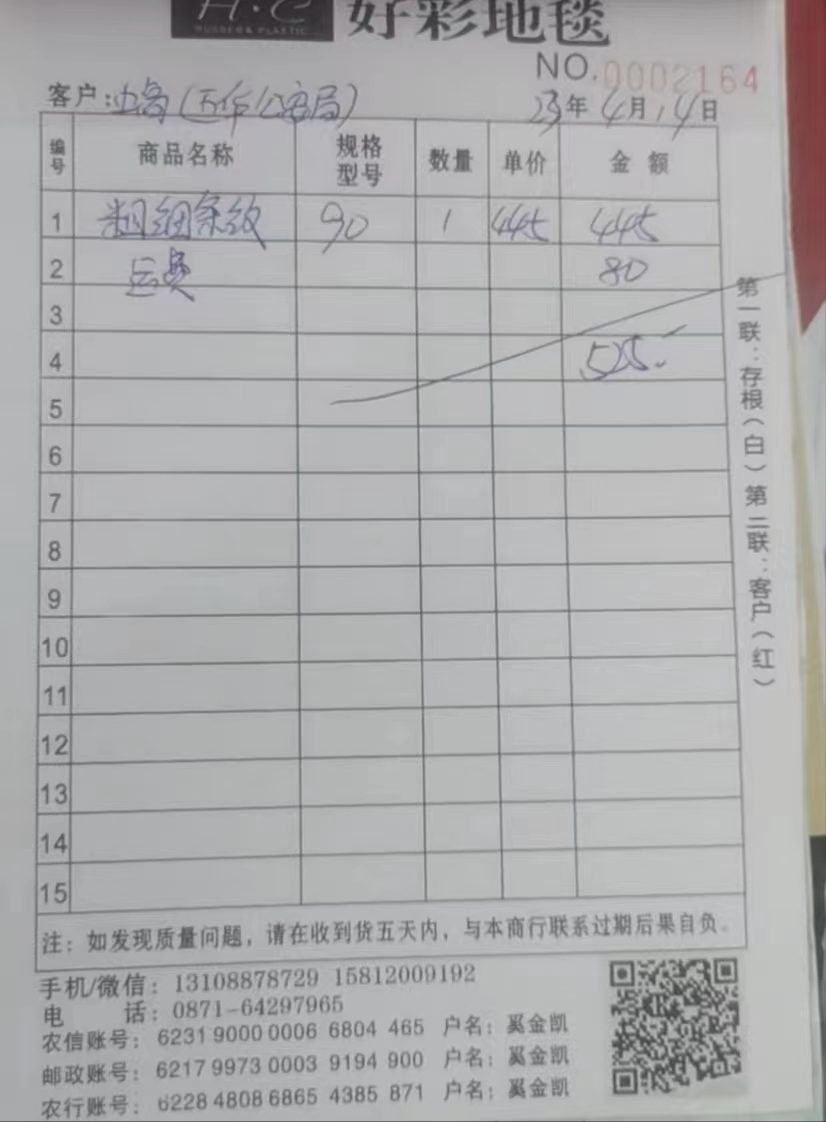 H·C
RUBBER & PLASTIC
好彩地毯
NO.0002164
客户: (公安局) 23年4月14日
编号 商品名称 规格型号 数量 单价 金额
1 粗细条纹 90 1 445 445
2 运费 80
3
4 525.
5
6
7
8
9
10
11
12
13
14
15
注：如发现质量问题，请在收到货五天内，与本商行联系过期后果自负。
手机/微信：13108878729 15812009192
电 话：0871-64297965
农信账号：6231 9000 0006 6804 465 户名：奚金凯
邮政账号：6217 9973 0003 9194 900 户名：奚金凯
农行账号：6228 4808 6865 4385 871 户名：奚金凯
第一联：存根（白）第二联：客户（红）